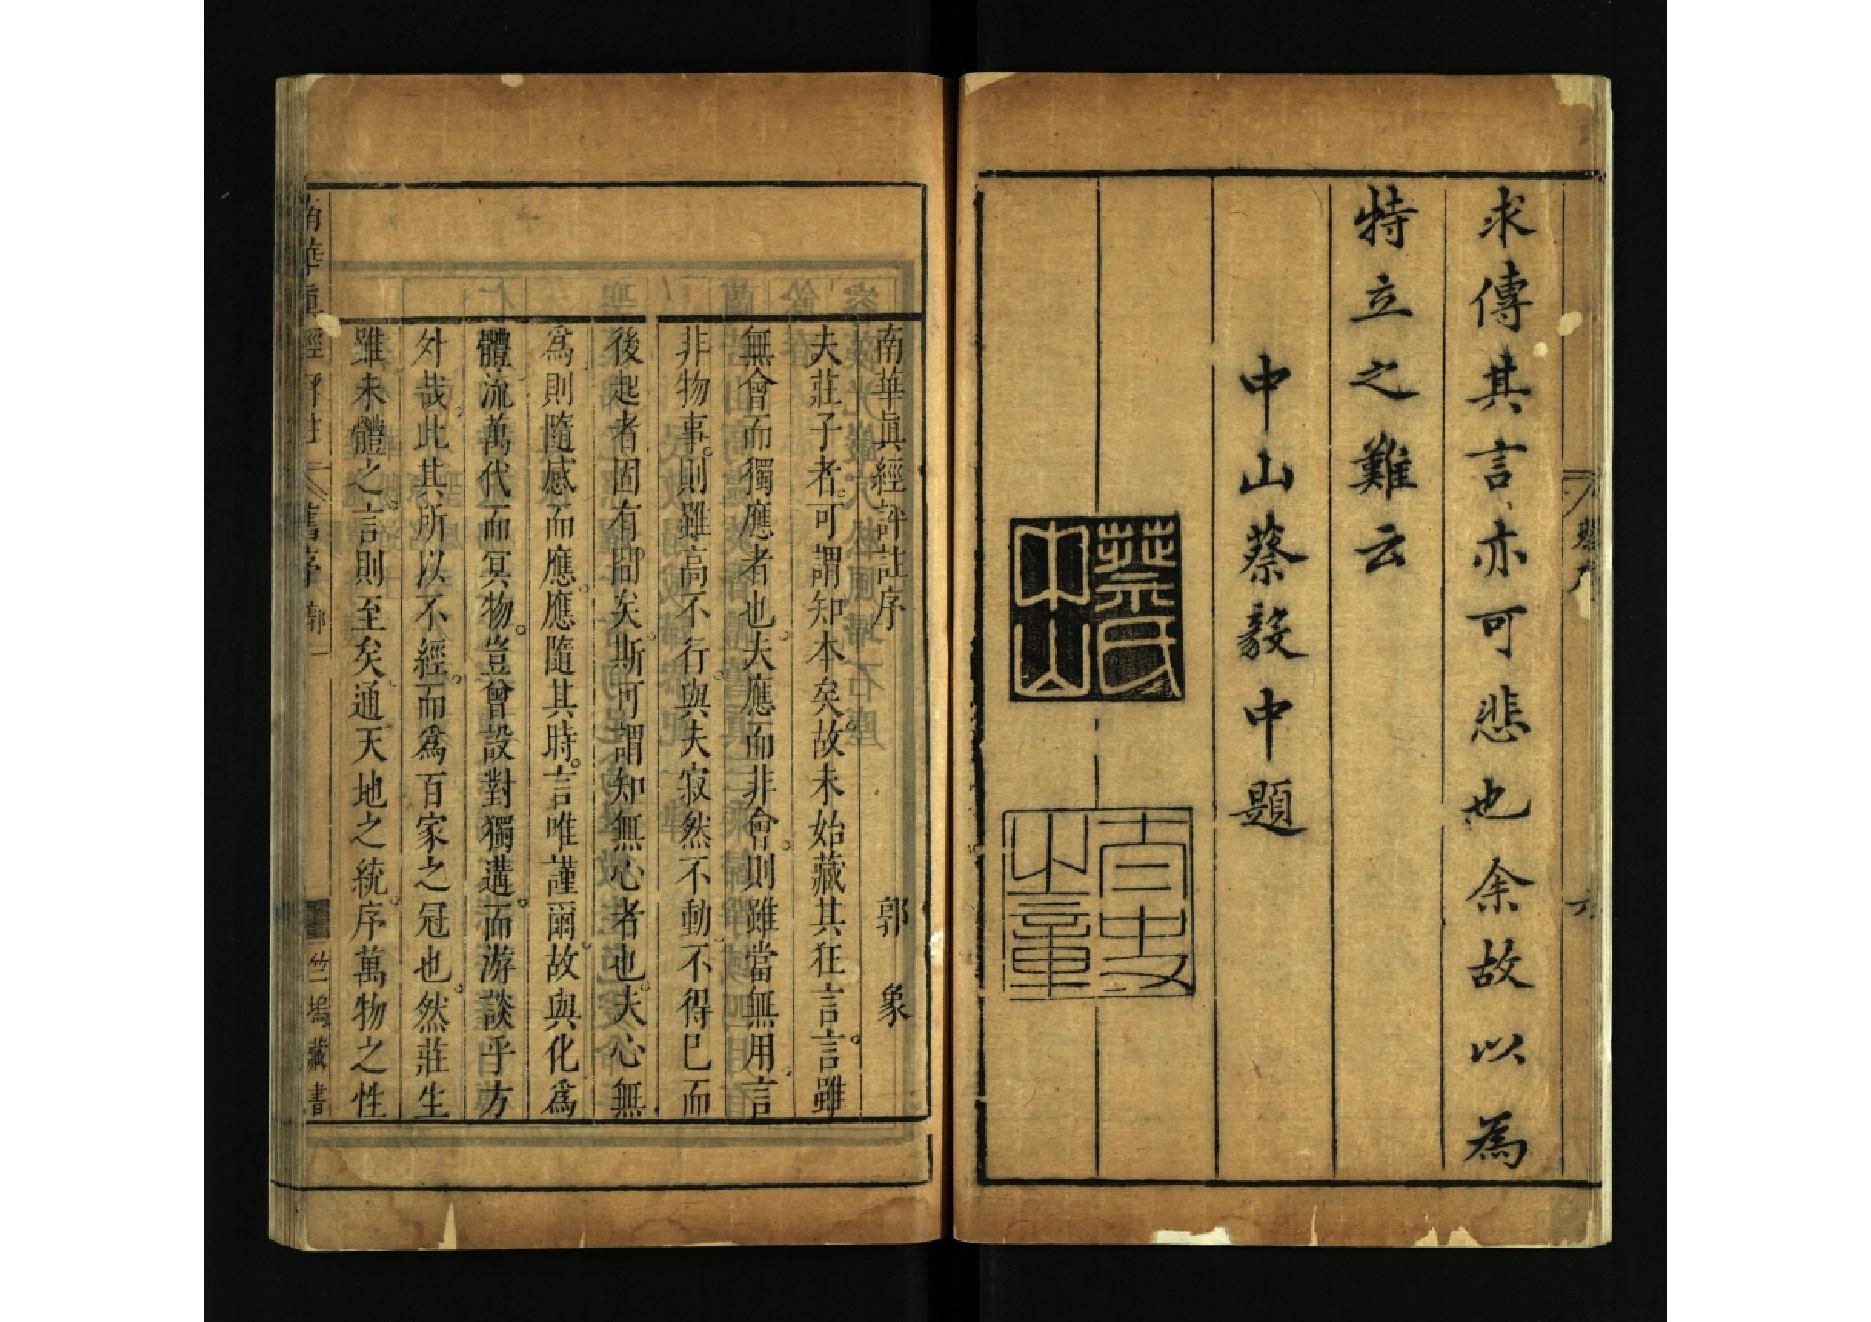 求傳其言亦可悲也余故以為
特立之難云
中山蔡毅中題
蔡氏中山
太史之章
南華眞經評註序
郭象
夫莊子者可謂知本矣故未始藏其狂言言雖
無會而獨應者也夫應而非會則雖當無用言
非物事則雖高不行與夫寂然不動不得已而
後起者固有間矣斯可謂知無心者也夫心無
爲則隨感而應應隨其時言唯謹爾故與化爲
體流萬代而冥物豈曾設對獨遘而游談乎方
外哉此其所以不經而爲百家之冠也然莊生
雖未體之言則至矣通天地之統序萬物之性
南華眞經評註
舊序
郭一
竺塢藏書